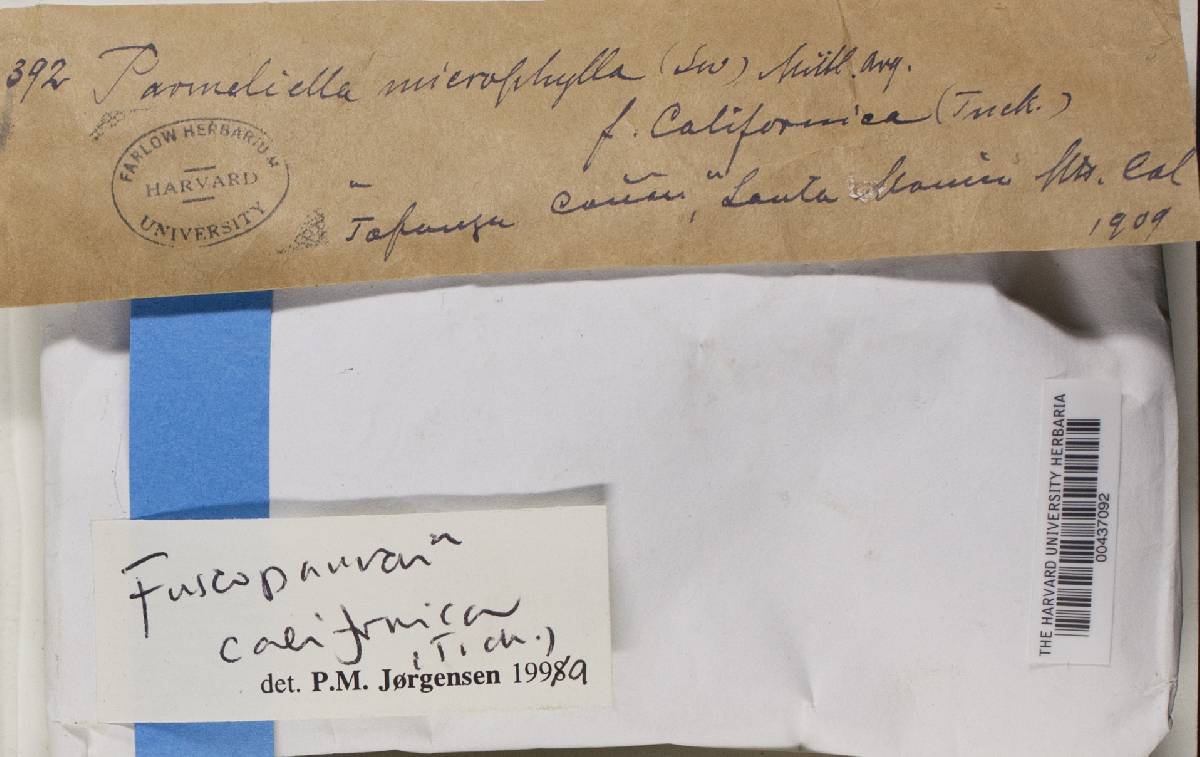 392 Parmeliella microphylla (Sw) Müll. Arg.
f. Californica (Tuck.)
"Topanga Cañon", Santa Monica Mts. Cal
1909
FARLOW HERBARIUM
HARVARD
UNIVERSITY
THE HARVARD UNIVERSITY HERBARIA
00437092
Fuscopannaria
californica
(Tuck.)
det. P.M. Jørgensen 1999